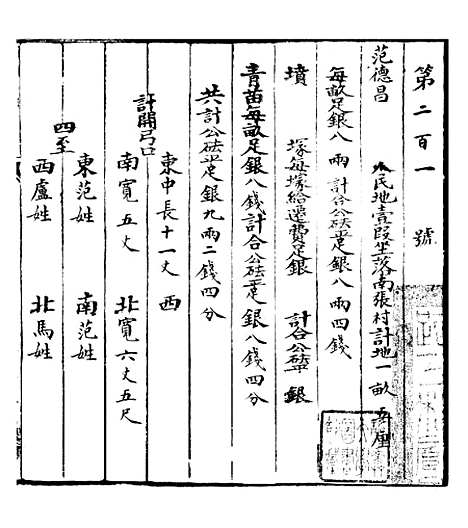 第二百一號
范德昌 民地壹段坐落南張村計地一畝五厘
每畝足銀八兩計合公砝平足銀八兩四錢
墳 塚每塚給遷費足銀 計合公砝平 銀
青苗每畝足銀八錢計合公砝平足銀八錢四分
共計公砝平足銀九兩二錢四分
東中長十一丈 西
計開弓口
南寬五丈 北寬六丈五尺
東范姓 南范姓
四至
西盧姓 北馬姓